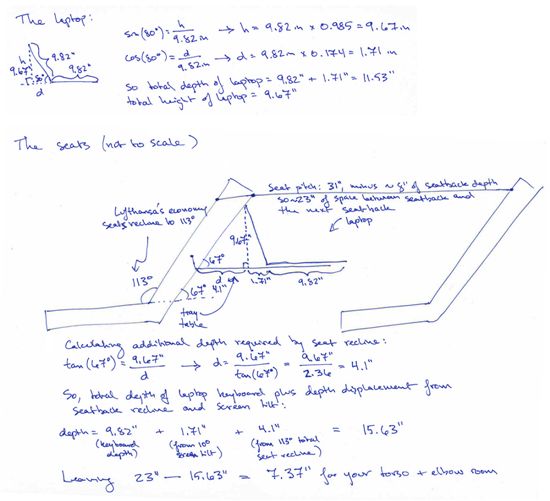 The laptop:
sin(80°) = h / 9.82 in → h = 9.82 in x 0.985 = 9.67 in
cos(80°) = d / 9.82 in → d = 9.82 in x 0.174 = 1.71 in
so total depth of laptop = 9.82" + 1.71" = 11.53"
total height of laptop = 9.67"
h
9.67"
9.82"
80°
9.82"
d
The seats (not to scale)
Seat pitch: 31", minus ~ 8" of seatback depth
so ~23" of space between seatback and
the next seatback
laptop
Lufthansa's economy
seats recline to 113°
113°
67°
9.67"
d
4.1"
1.71"
9.82"
67°
tray
table
Calculating additional depth required by seat recline:
tan(67°) = 9.67" / d → d = 9.67" / tan(67°) = 9.67" / 2.36 = 4.1"
So, total depth of laptop keyboard plus depth displacement from
seatback recline and screen tilt:
depth = 9.82" + 1.71" + 4.1" = 15.63"
(keyboard depth) (from 10° screen tilt) (from 113° total seat recline)
Leaving 23" — 15.63" = 7.37" for your torso + elbow room